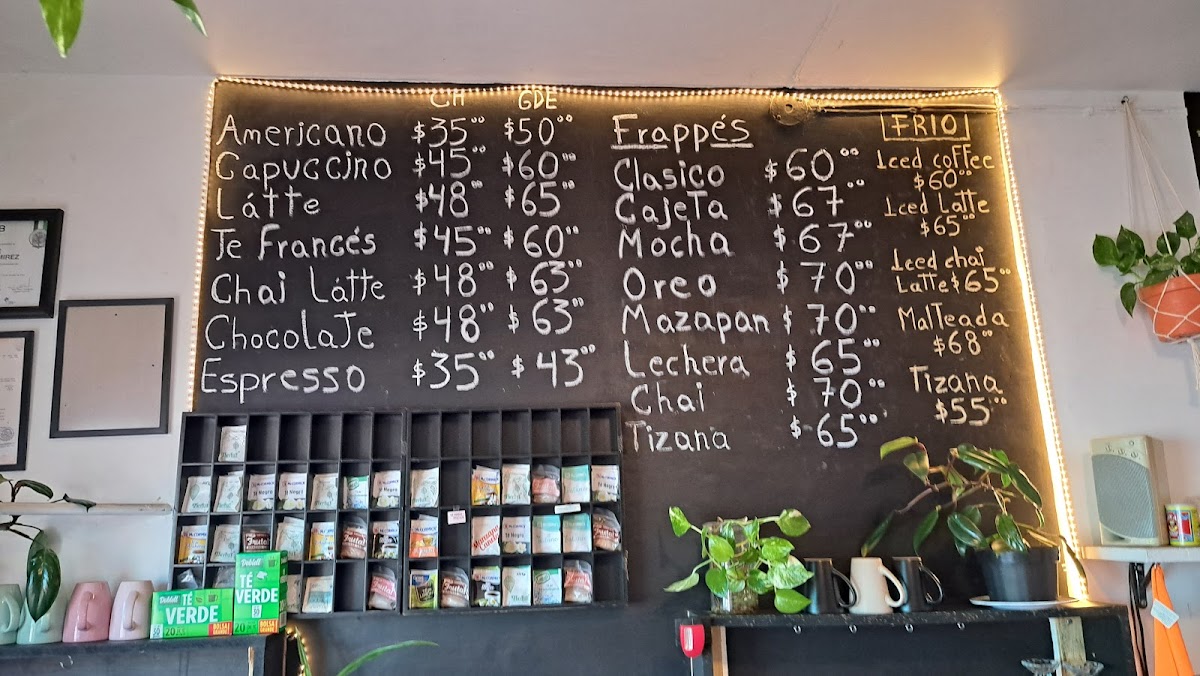 CH GDE
Americano $35.00 $50.00
Capuccino $45.00 $60.00
Látte $48.00 $65.00
Te Francés $45.00 $60.00
Chai Látte $48.00 $63.00
Chocolate $48.00 $63.00
Espresso $35.00 $43.00
Frappés
Clasico $60.00
Cajeta $67.00
Mocha $67.00
Oreo $70.00
Mazapan $70.00
Lechera $65.00
Chai $70.00
Tizana $65.00
FRIO
Iced coffee
$60.00
Iced Latte
$65.00
Iced chai
Latte $65.00
Malteada
$68.00
Tizana
$55.00
TÉ
VERDE
TÉ VERDE
B
MIREZ